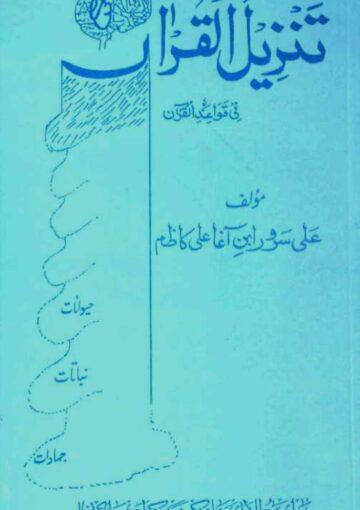 تنزیل القرآن
فی قواعد القرآن
مؤلف
علی سرور ابن آغا علی کاظم
حیوانات
نباتات
جمادات